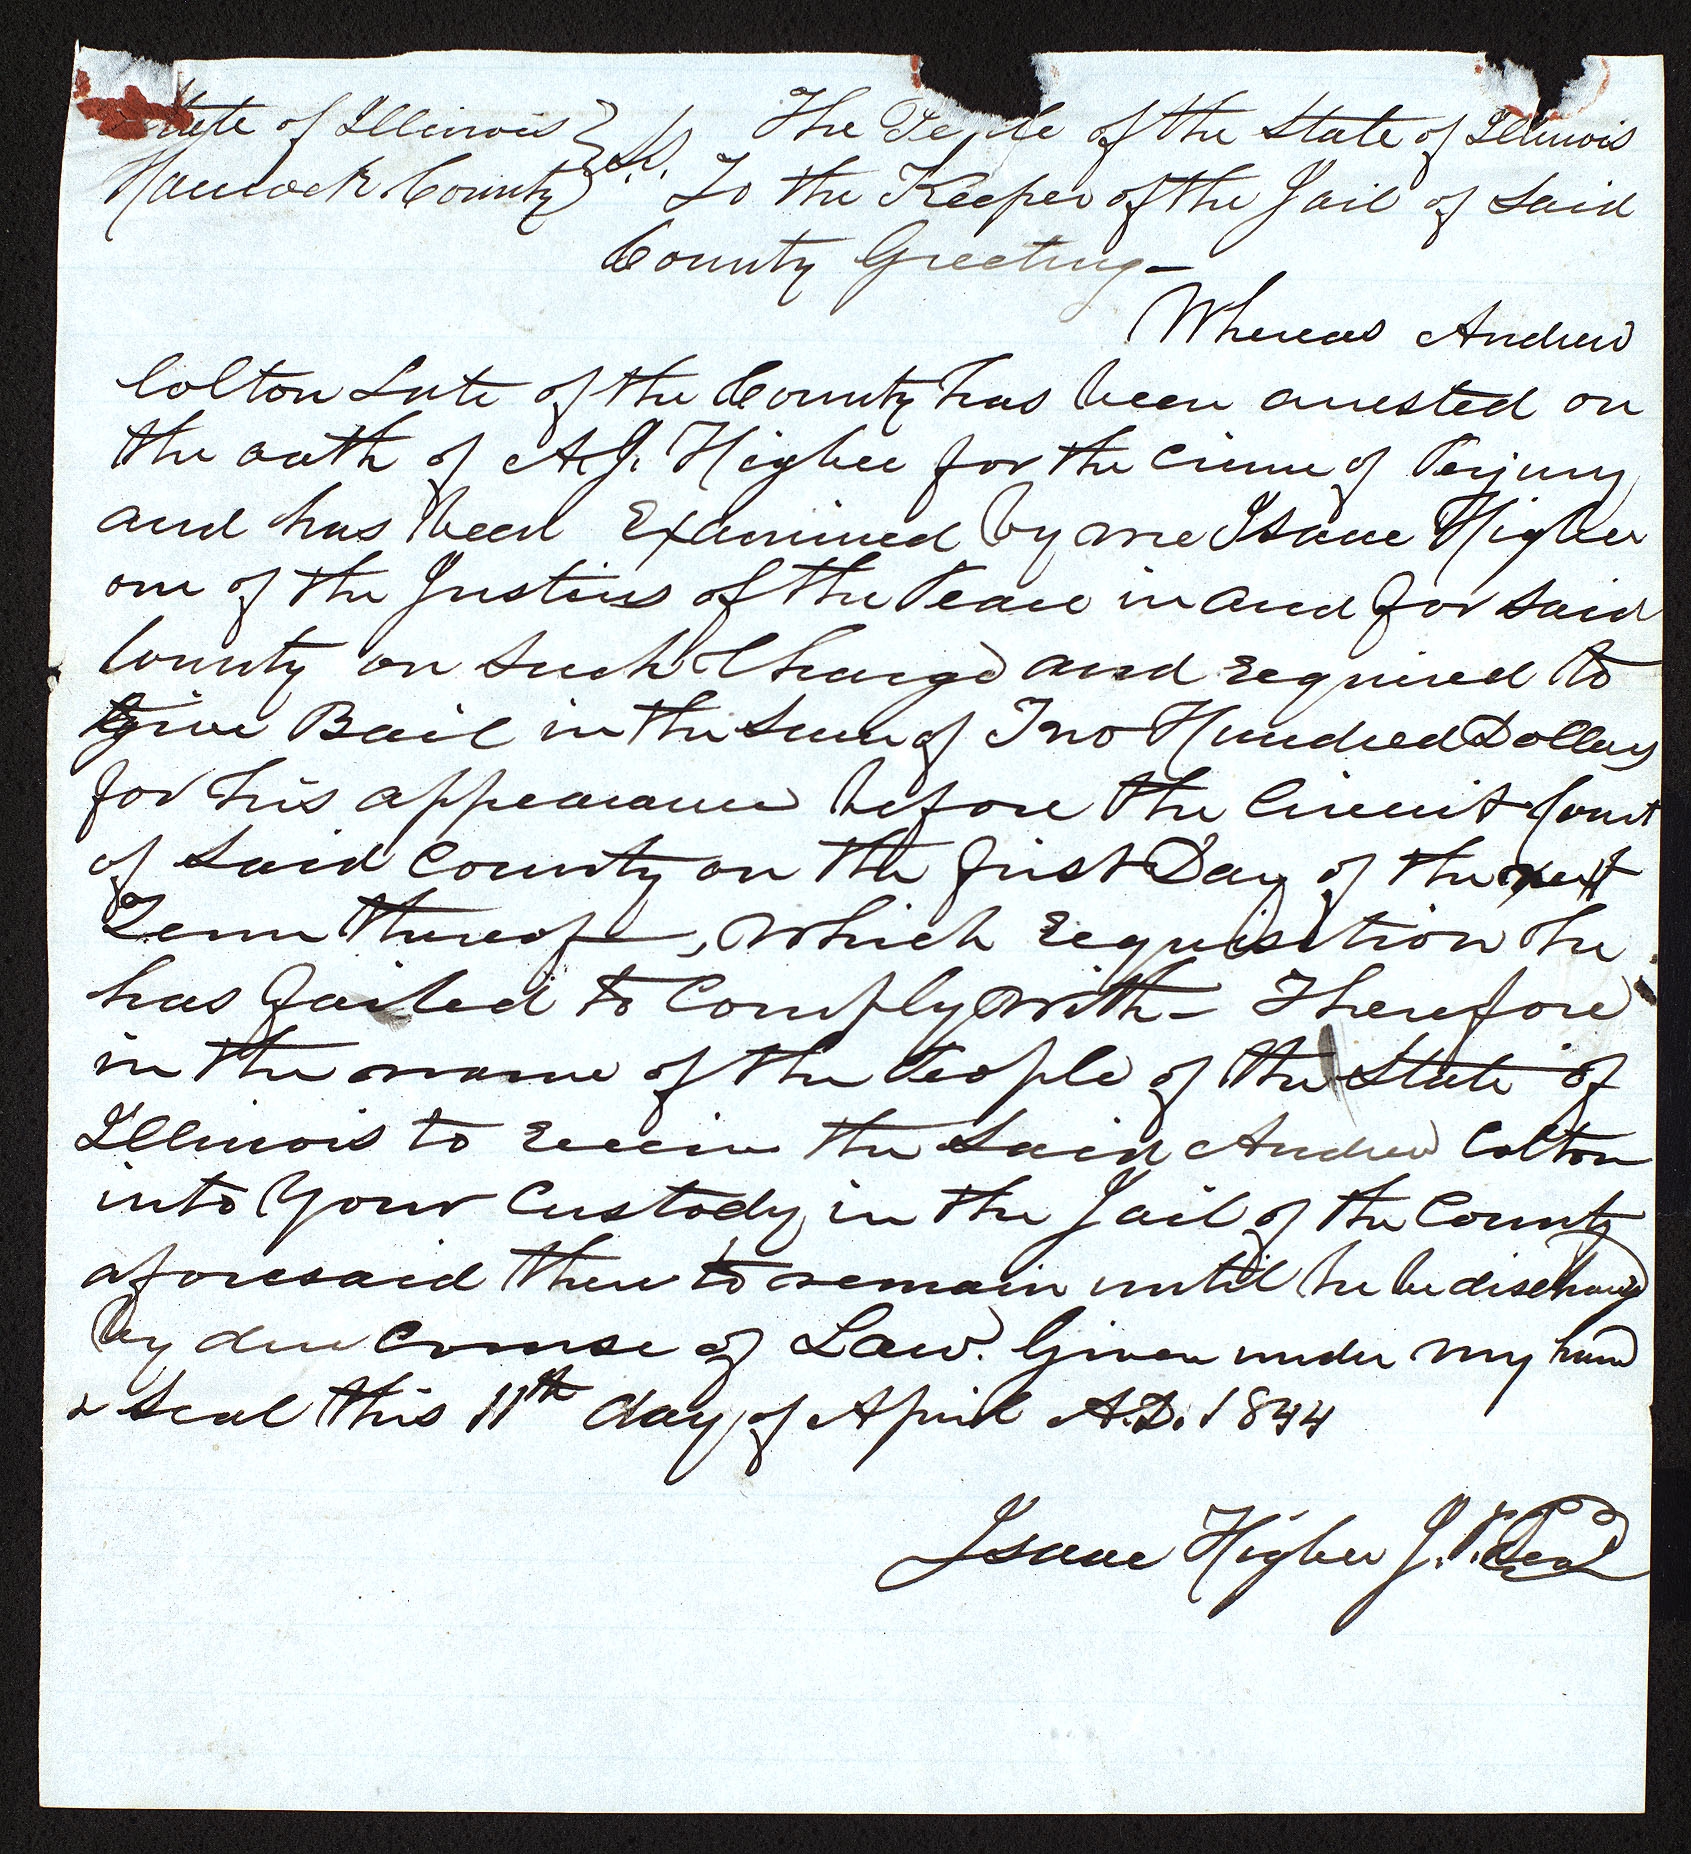 State of Illinois } S.S. The People of the State of Illinois
Hancock County } To the Keeper of the Jail of Said
County Greeting –
Whereas Andrew
Colton Late of the County has been arrested on
the oath of A. J. Higbee for the Crime of Perjury
and has been Examined by me Isaac Higbee
one of the Justices of the Peace in and for Said
County on Such Charge and required to
give Bail in the Sum of Two Hundred Dollars
for his appearance before the Circuit Court
of Said County on the first Day of the next
Term thereof –, which requisition he
has failed to Comply with – Therefore
in the name of the People of the State of
Illinois to receive the Said Andrew Colton
into Your Custody in the Jail of the County
aforesaid there to remain until he be discharged
by due Course of Law. Given under my hand
& Seal this 11th day of April A.D. 1844
Isaac Higbee J. P. Seal